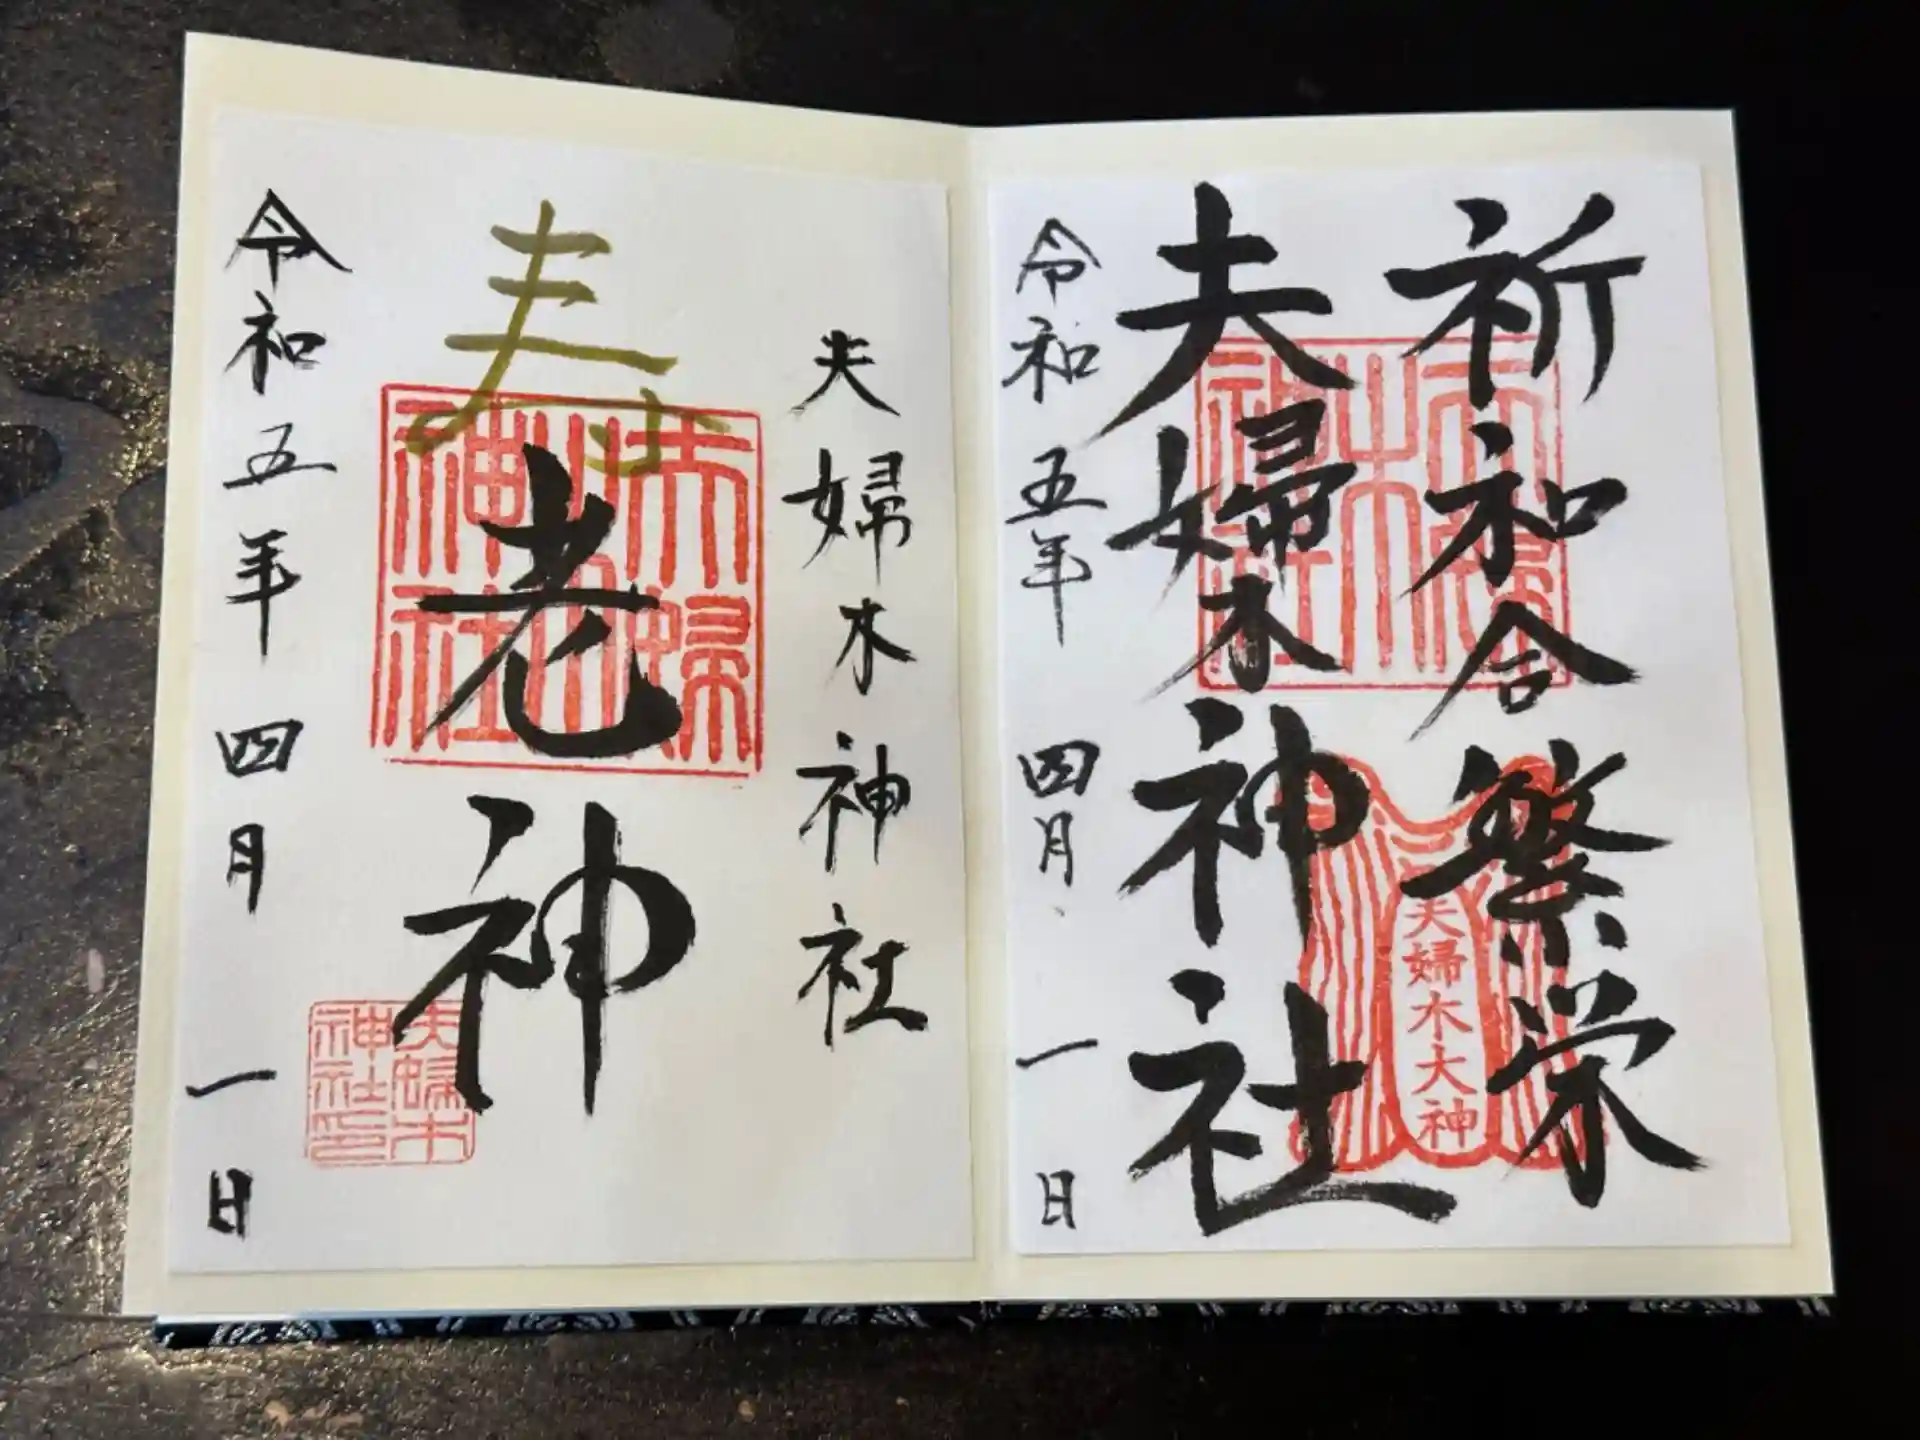 祈和合繁栄
夫婦木神社
夫婦木大神
令和五年四月一日
夫婦木神社
寿
老神
夫婦木
神社印
令和五年四月一日